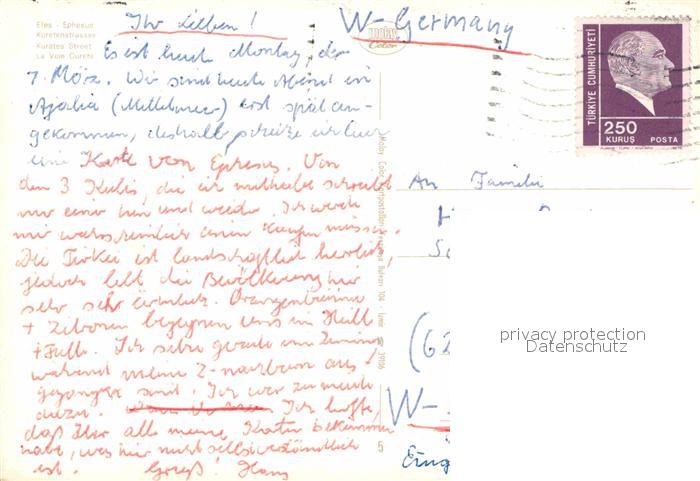 Efes - Ephesus
Kuretenstrasse
Kuretes Street
La Voie Curete
Ihr Lieben!
Es ist heute Montag, der
7. März. Wir sind heute Abend in
(Mittelmeer) erst spät an-
gekommen, deshalb schicke ich hier
eine Karte von Ephesus. Von
den 3 Kulis, die ich mithabe schreibt
nur einer hin und wieder. Ich werde
mir wahrscheinlich einen kaufen müssen.
Die Türkei ist landschaftlich herrlich,
jedoch lebt die Bevölkerung hier
sehr sehr ärmlich. Orangenbäume
+ Zitronen begegnen uns in Hüll
+ Fülle. Ich sitze gerade im Zimmer
während meine 2 aus
gegangen sind. Ich war zu müde
dazu. Ich hoffe,
daß Ihr alle meine Karten bekommen
habt, was hier nicht selbstverständlich
ist. Gruß! Hans
5
W-Germany
molay
Color
TÜRKİYE CUMHURİYETİ
250
KURUŞ POSTA
An Familie
(62
W-
privacy protection
Datenschutz